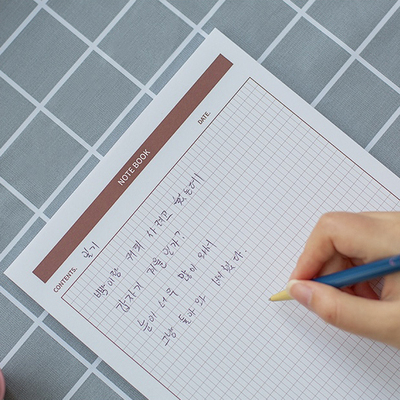 NOTE BOOK
CONTENTS.
일기
DATE.
커피 사려고 했는데
갑자기 겨울인가?
눈이 너무 많이 와서
그냥 돌아와 버렸다.